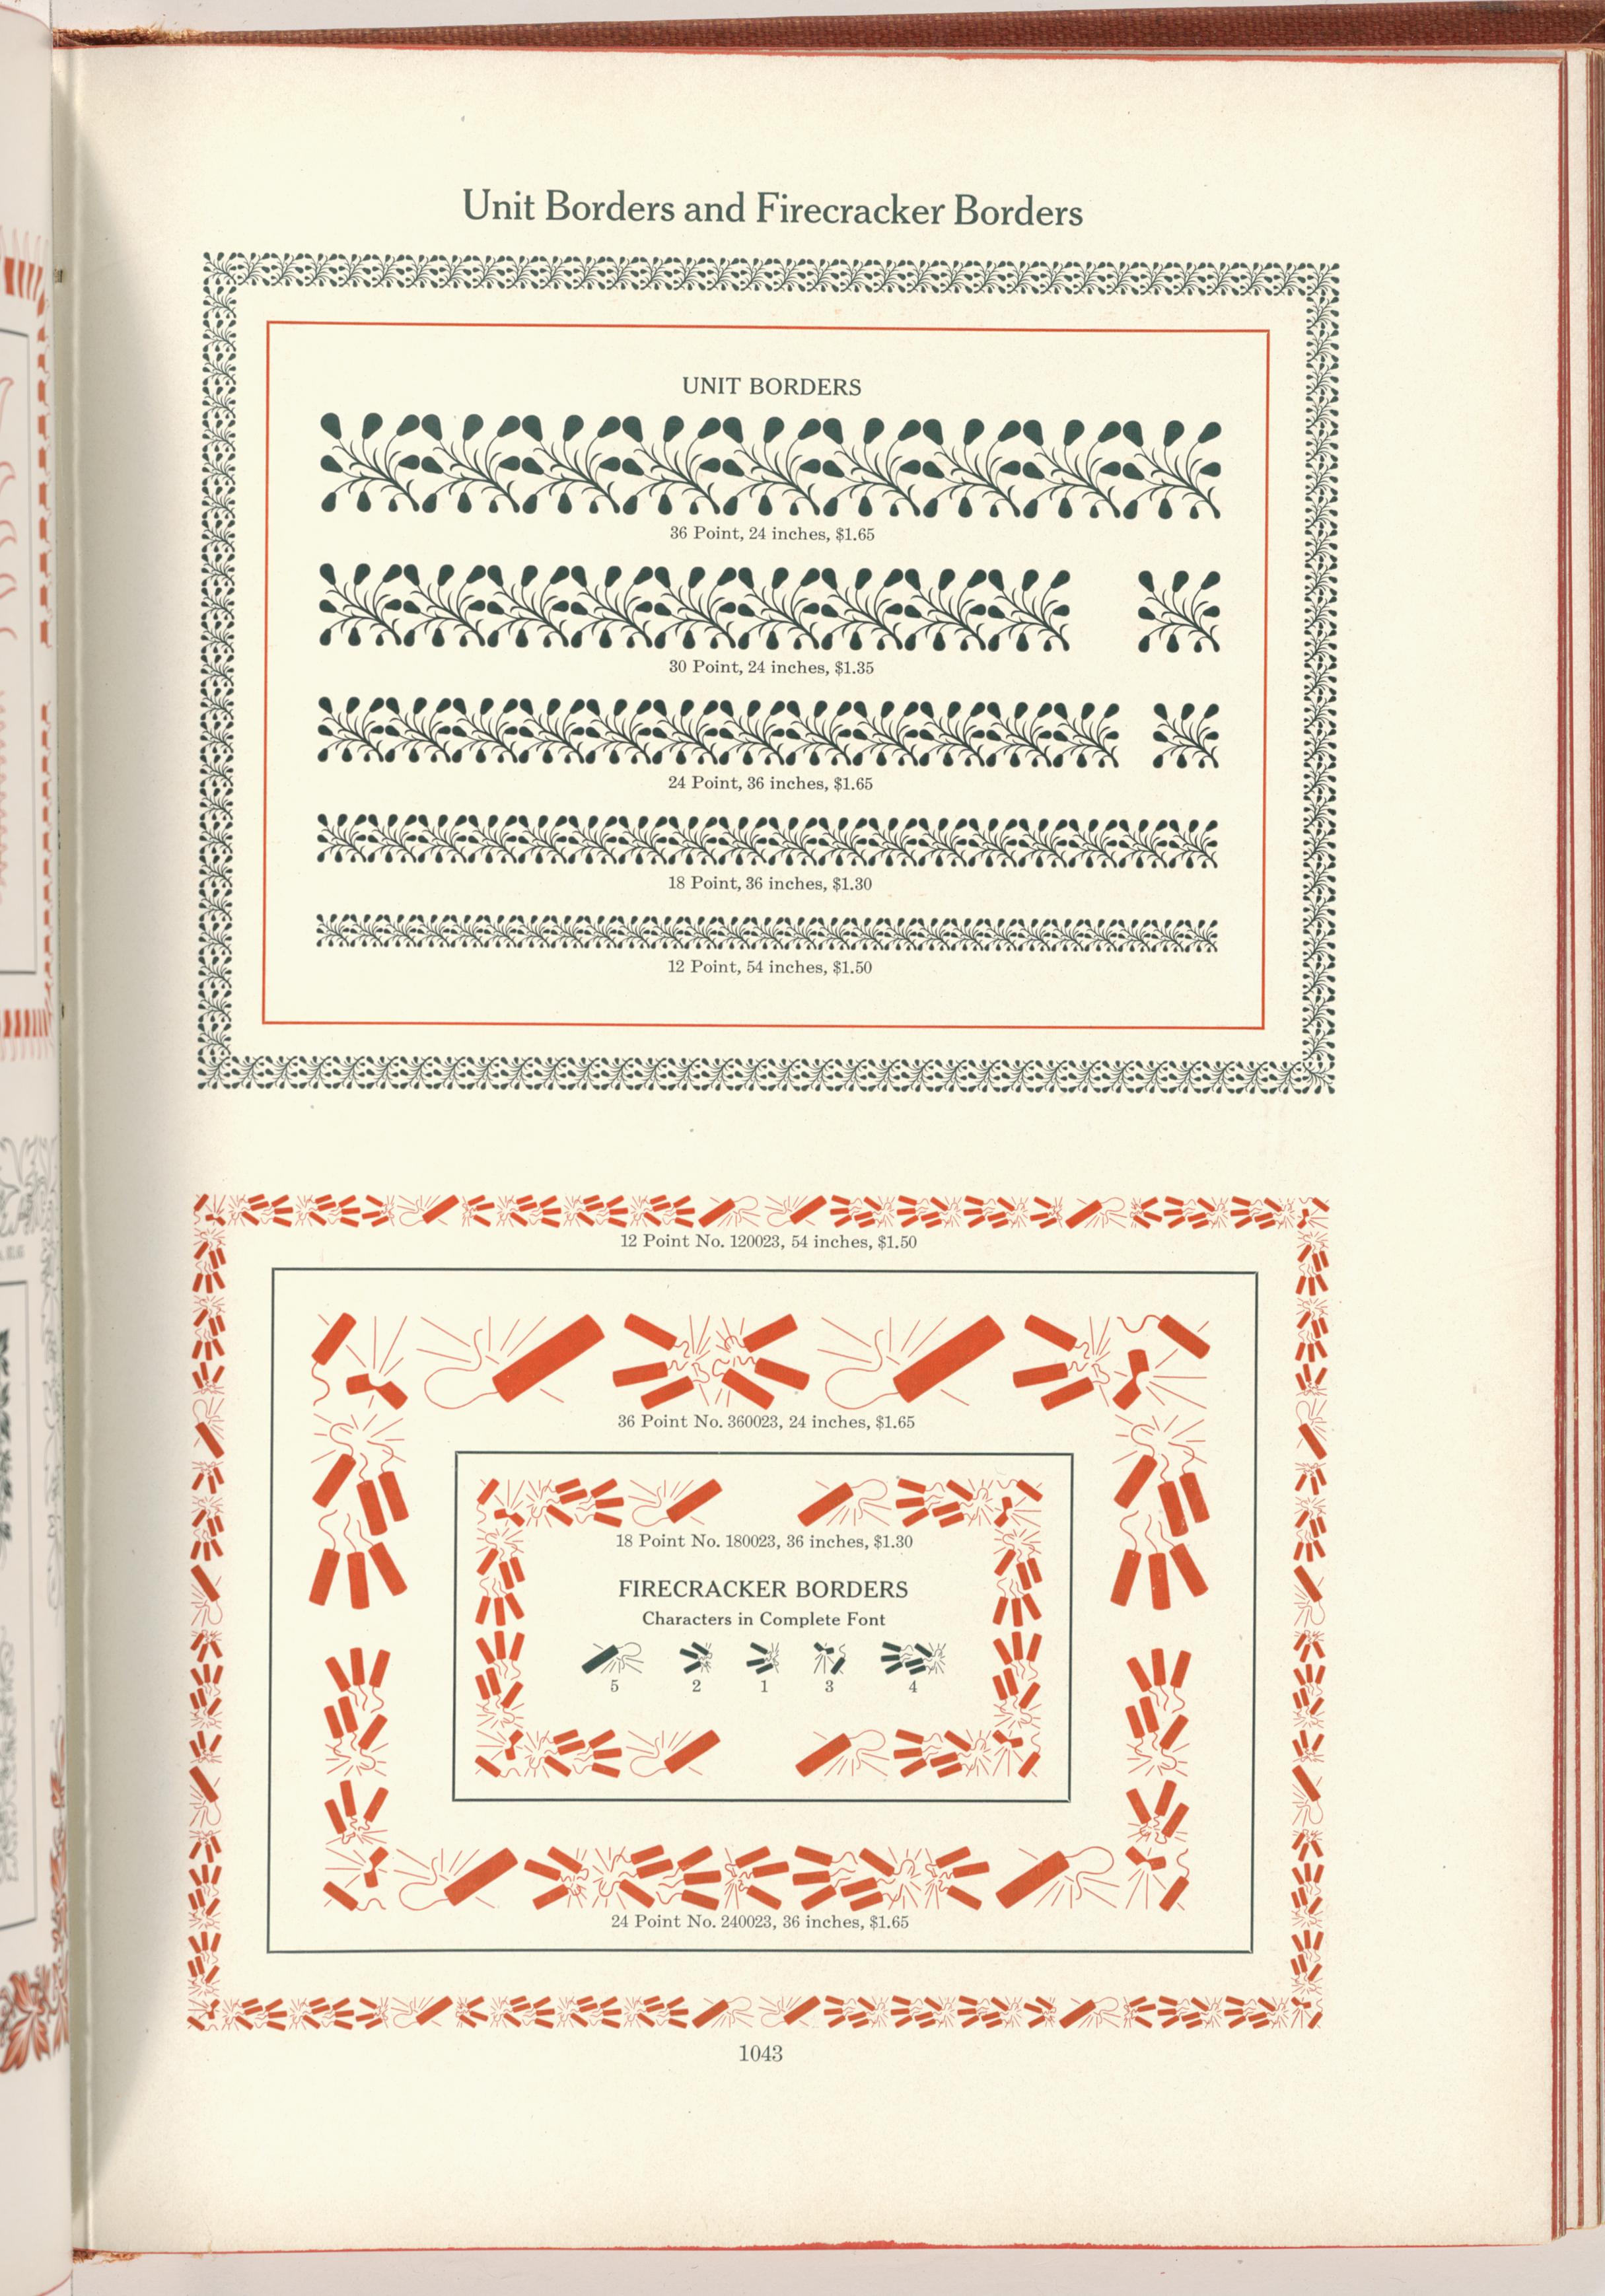 Unit Borders and Firecracker Borders
UNIT BORDERS
36 Point, 24 inches, $1.65
30 Point, 24 inches, $1.35
24 Point, 36 inches, $1.65
18 Point, 36 inches, $1.30
12 Point, 54 inches, $1.50
12 Point No. 120023, 54 inches, $1.50
36 Point No. 360023, 24 inches, $1.65
18 Point No. 180023, 36 inches, $1.30
FIRECRACKER BORDERS
Characters in Complete Font
5 2 1 3 4
24 Point No. 240023, 36 inches, $1.65
1043